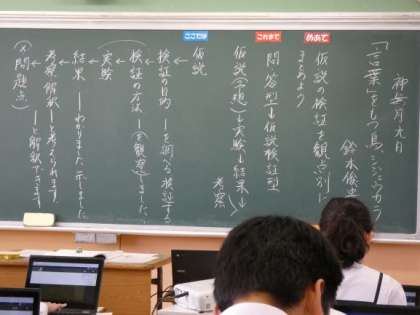 神無月九日
「言葉」をもつ鳥、シジュウカラ
鈴木俊貴
めあて
仮説の検証を観点別に
まとめよう
これまで
問答型→仮説検証型
仮説(予想)→実験→結果→
考察
ここでは
仮説
検証の目的 ―を調べる、検証する
検証の方法 ―(を観察)しました。
実験
結果 ―わかりました、示しました。
考察、解釈 ―と考えられます。
―と解釈できます。
(問題点)